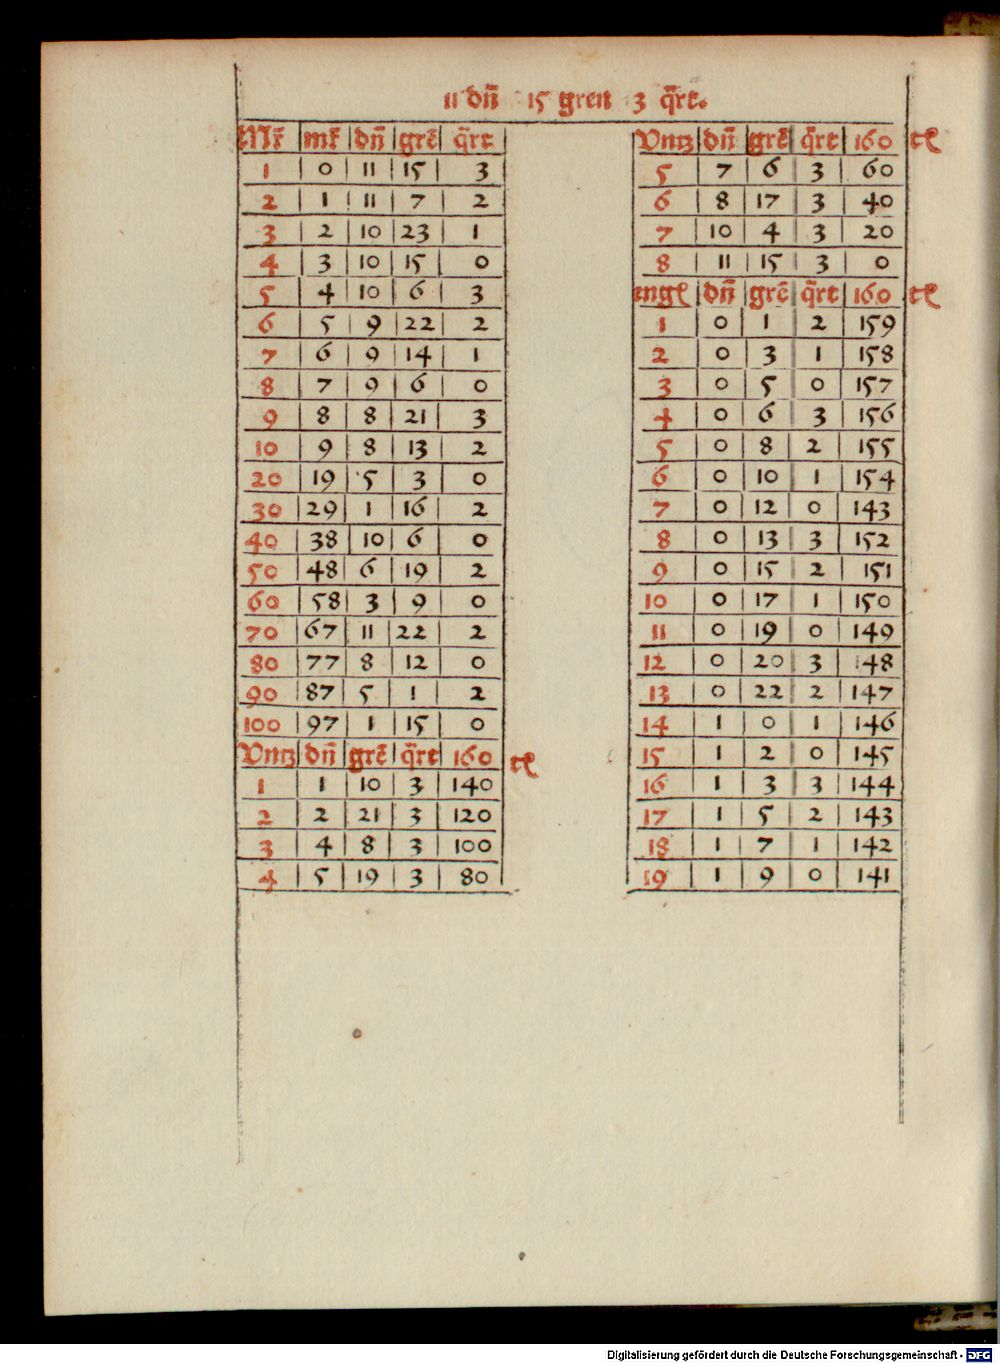 11 dn̄ 15 gren 3 q̄rt.
Mr̄ mr̄ dn̄ grē q̄rt
1 0 11 15 3
2 1 11 7 2
3 2 10 23 1
4 3 10 15 0
5 4 10 6 3
6 5 9 22 2
7 6 9 14 1
8 7 9 6 0
9 8 8 21 3
10 9 8 13 2
20 19 5 3 0
30 29 1 16 2
40 38 10 6 0
50 48 6 19 2
60 58 3 9 0
70 67 11 22 2
80 77 8 12 0
90 87 5 1 2
100 97 1 15 0
Vntz dn̄ grē q̄rt 160 tl
1 1 10 3 140
2 2 21 3 120
3 4 8 3 100
4 5 19 3 80
Vntz dn̄ grē q̄rt 160 tl
5 7 6 3 60
6 8 17 3 40
7 10 4 3 20
8 11 15 3 0
engl dn̄ grē q̄rt 160 tl
1 0 1 2 159
2 0 3 1 158
3 0 5 0 157
4 0 6 3 156
5 0 8 2 155
6 0 10 1 154
7 0 12 0 143
8 0 13 3 152
9 0 15 2 151
10 0 17 1 150
11 0 19 0 149
12 0 20 3 148
13 0 22 2 147
14 1 0 1 146
15 1 2 0 145
16 1 3 3 144
17 1 5 2 143
18 1 7 1 142
19 1 9 0 141
Digitalisierung gefördert durch die Deutsche Forschungsgemeinschaft - DFG